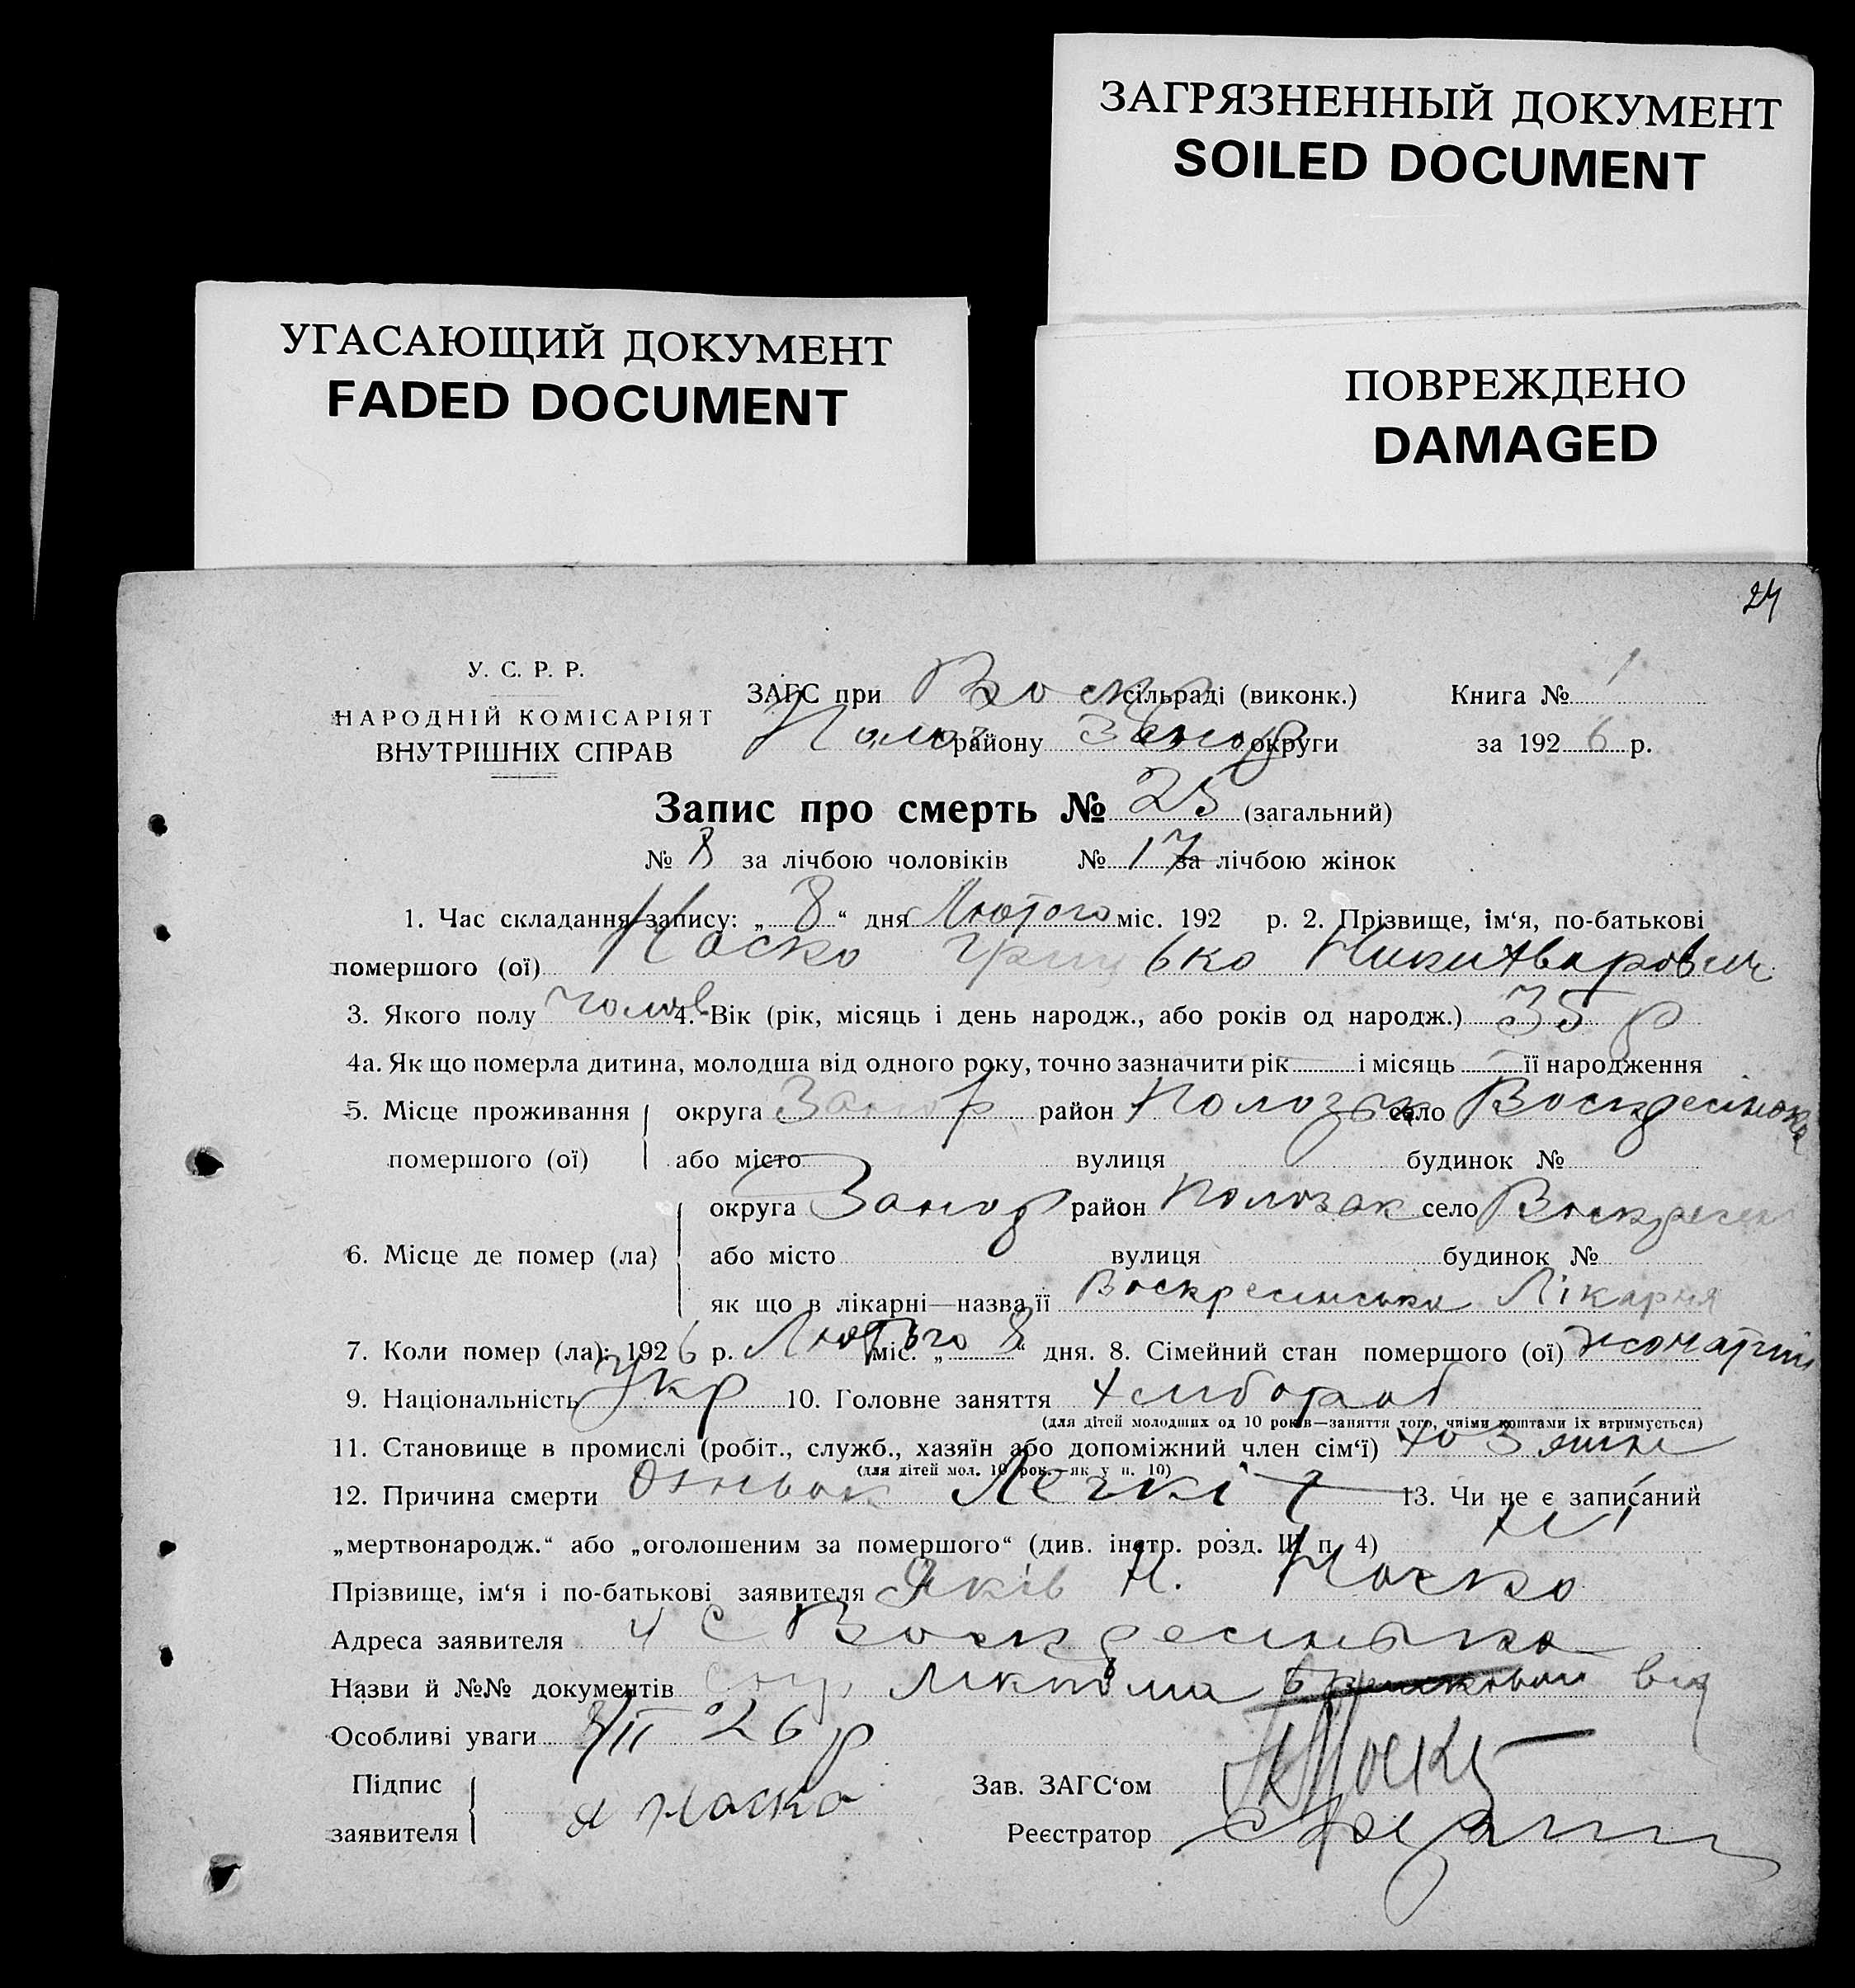 ЗАГРЯЗНЕННЫЙ ДОКУМЕНТ
SOILED DOCUMENT
УГАСАЮЩИЙ ДОКУМЕНТ
FADED DOCUMENT
ПОВРЕЖДЕНО
DAMAGED
24
У. С. Р. Р.
НАРОДНІЙ КОМІСАРІЯТ
ВНУТРІШНІХ СПРАВ
ЗАГС при Воск сільраді (виконк.) Книга № 1
Полог району Запор округи за 1926 р.
Запис про смерть № 25 (загальний)
№ 8 за лічбою чоловіків № 17 за лічбою жінок
1. Час складання запису: „ 8 “ дня Лютого міс. 192 р. 2. Прізвище, ім‘я, по-батькові
помершого (ої) Носко Грицько
3. Якого полу чолов 4. Вік (рік, місяць і день народж., або років од народж.) 35 р
4а. Як що померла дитина, молодша від одного року, точно зазначити рік і місяць її народження
5. Місце проживання округа Запор район село
помершого (ої) або місто вулиця будинок №
округа Запор район село
6. Місце де помер (ла) або місто вулиця будинок №
як що в лікарні—назва її Лікарня
7. Коли помер (ла): 1926 р. Лютого міс. „ 8 “ дня. 8. Сімейний стан помершого (ої)
9. Національність Укр 10. Головне заняття хлібороб
(для дітей молодших од 10 років—заняття того, чиїми коштами їх втримується)
11. Становище в промислі (робіт., служб., хазяїн або допоміжний член сім‘ї)
(для дітей мол. 10 рок.—як у п. 10)
12. Причина смерти Легкіх 13. Чи не є записаний
„мертвонародж.“ або „оголошеним за помершого“ (див. інстр. розд. III п. 4) Ні
Прізвище, ім‘я і по-батькові заявителя Яків Н. Носко
Адреса заявителя с
Назви й №№ документів від
Особливі уваги 8/II 26 р
Підпис
заявителя Я Носко
Зав. ЗАГС‘ом
Реєстратор